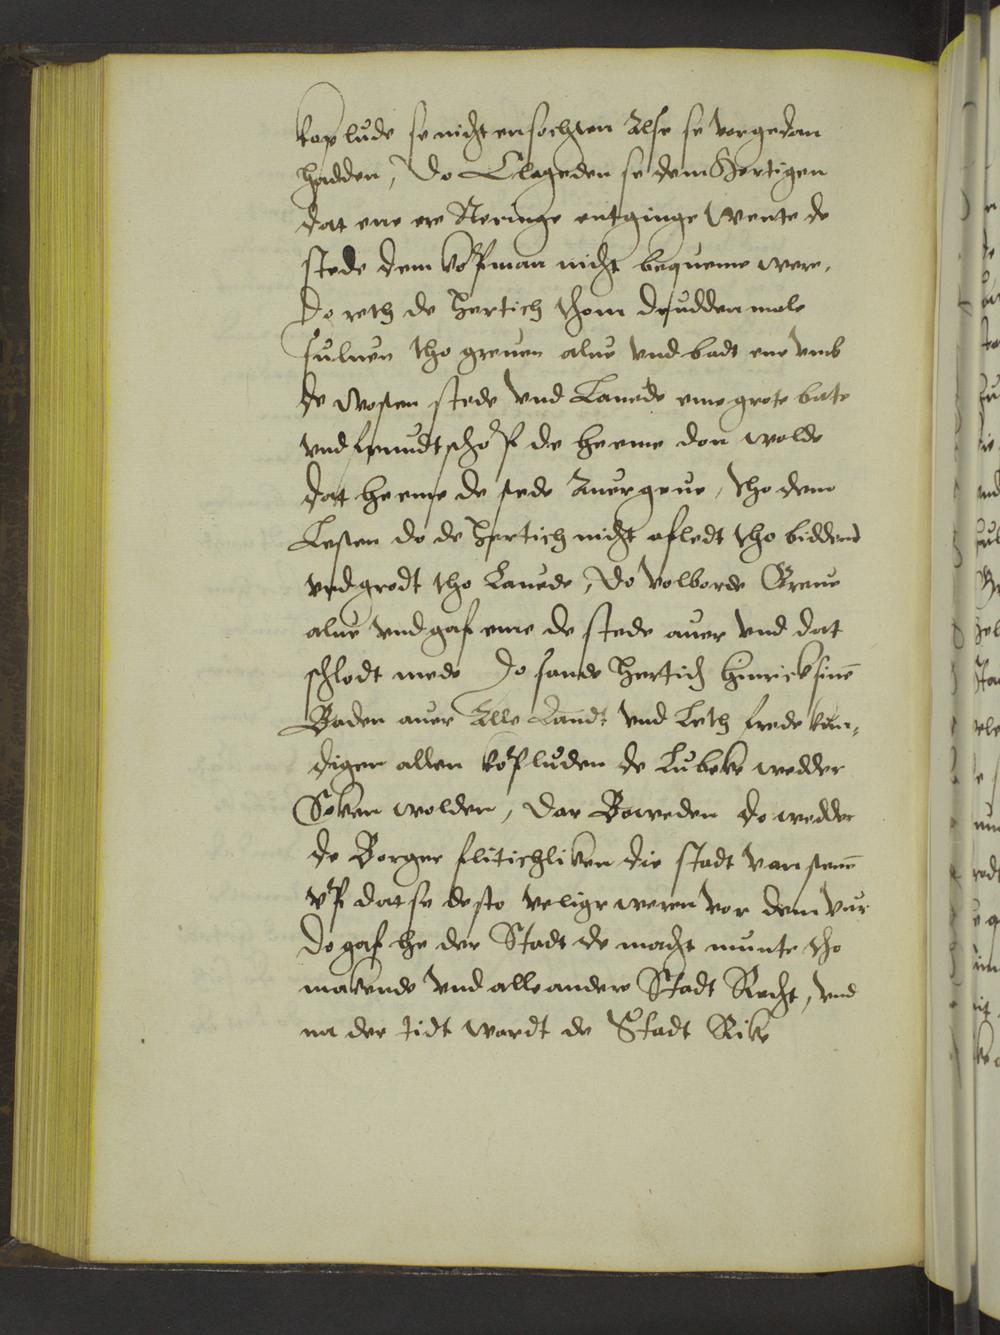 koplude se nicht ensochten Alse se vorgedan
hadden, Do Clageden se dem Hertigen
dat ene ere Neringe entginge Wente de
stede dem kopman nicht bequeme were,
Do reth de Hertich thom drudden male
suluen tho greuen alue vnd badt ene vmb
de wosten stede vnd Lauede eme grote bate
vnd frundtschop de he eme don wolde
dat he eme de stede Auergeue, tho dem
Lesten do de Hertich nicht afledt tho biddend
vnd grodt tho Lauede, Do volborde Greue
alue vnd gaf eme de stede auer vnd dat
schlodt mede Do sande Hertich Hinrick sine
Baden auer Alle Landt vnd Leth frede kun-
digen allen kopluden de Lubeke wedder
Soken wolden, Dar Boweden do wedder
de Borger flitichliken die stadt van stene
vp dat se desto veliger weren vor dem vur
Do gaf he der Stadt de macht munte tho
makende vnd alle andere Stadt Recht, vnd
na der tidt wardt de Stadt Rike